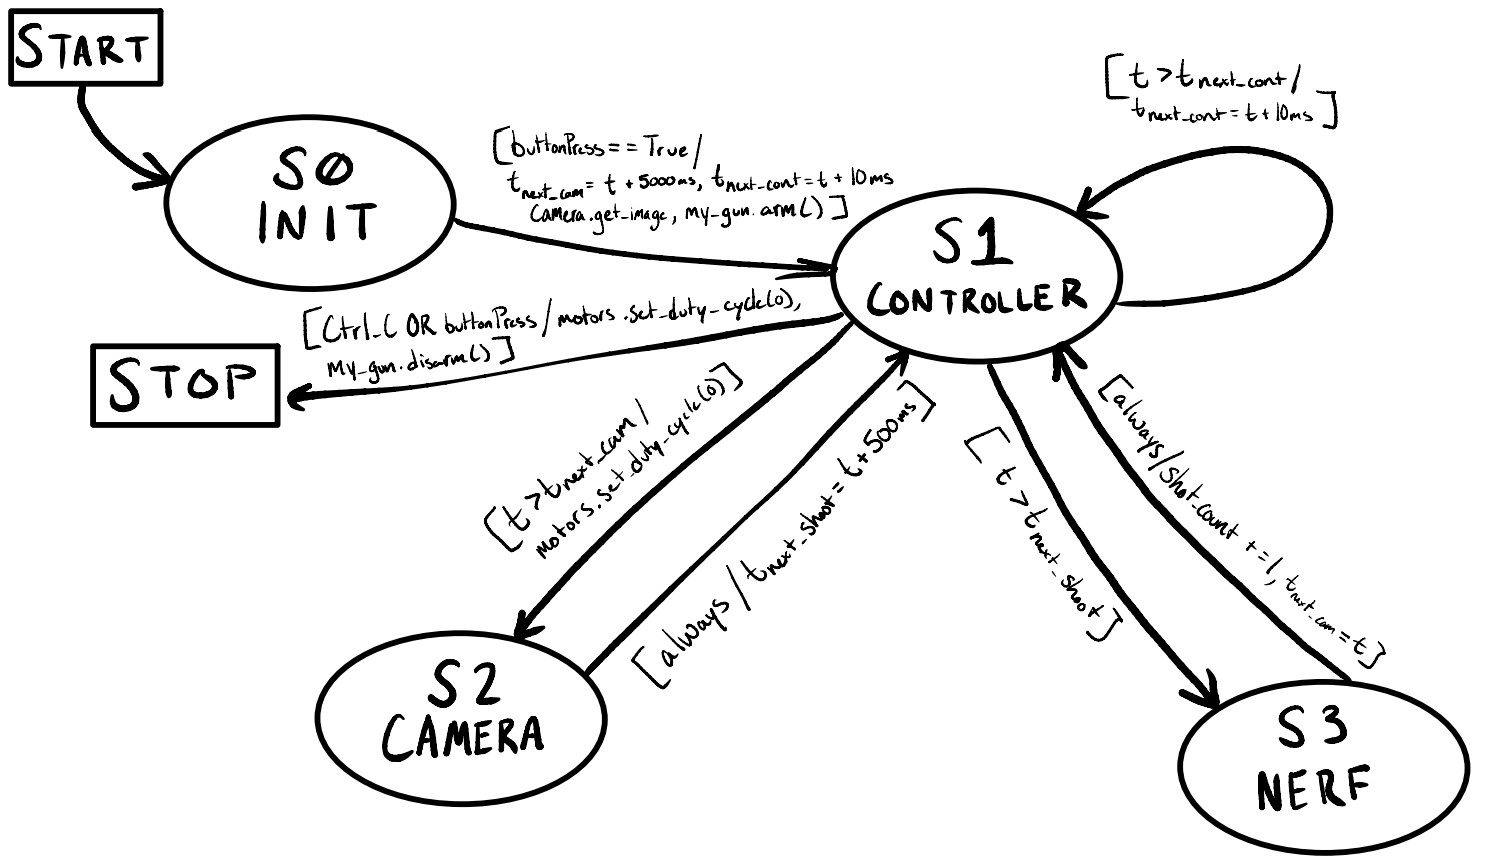 START
S0
INIT
[buttonPress == True /
t_next_cam = t + 5000ms, t_next_cont = t + 10ms
camera.get_image, my_gun.arm()]
[t > t_next_cont /
t_next_cont = t + 10ms]
S1
CONTROLLER
[Ctrl_C OR buttonPress / motors.set_duty_cycle(0),
my_gun.disarm()]
STOP
[t > t_next_cam /
motors.set_duty_cycle(0)]
[always / t_next_shoot = t + 500ms]
[t > t_next_shoot]
[always / shot_count += 1, t_next_cam = t]
S2
CAMERA
S3
NERF